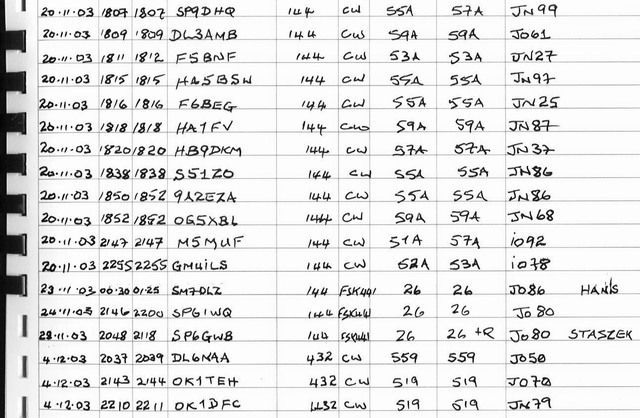 20.11.03 1807 1807 SP9DHQ 144 CW 55A 57A JN99
20.11.03 1809 1809 DL3AMB 144 CW 59A 59A JO61
20.11.03 1811 1812 F5BNF 144 CW 53A 53A JN27
20.11.03 1815 1815 HA5BSW 144 CW 55A 55A JN97
20.11.03 1816 1816 F6BEG 144 CW 55A 55A JN25
20.11.03 1818 1818 HA1FV 144 CW 59A 59A JN87
20.11.03 1820 1820 HB9DKM 144 CW 57A 57A JN37
20.11.03 1838 1838 S51ZO 144 CW 55A 55A JN86
20.11.03 1850 1852 9A2EZA 144 CW 55A 55A JN86
20.11.03 1852 1852 OG5XBL 144 CW 59A 59A JN68
20.11.03 2147 2147 M5MUF 144 CW 57A 57A io92
20.11.03 2255 2255 GM4ILS 144 CW 52A 53A io78
23.11.03 00.30 01.25 SM7DLZ 144 FSK441 26 26 JO86 HANS
24.11.03 2146 2200 SP6IWQ 144 FSK441 26 26 Jo80
28.11.03 2048 2118 SP6GWB 144 FSK441 26 26 +R Jo80 STASZEK
4.12.03 2037 2039 DL6NAA 432 CW 559 559 JO50
4.12.03 2143 2144 OK1TEH 432 CW 519 519 JO70
4.12.03 2210 2211 OK1DFC 432 CW 519 519 JN79